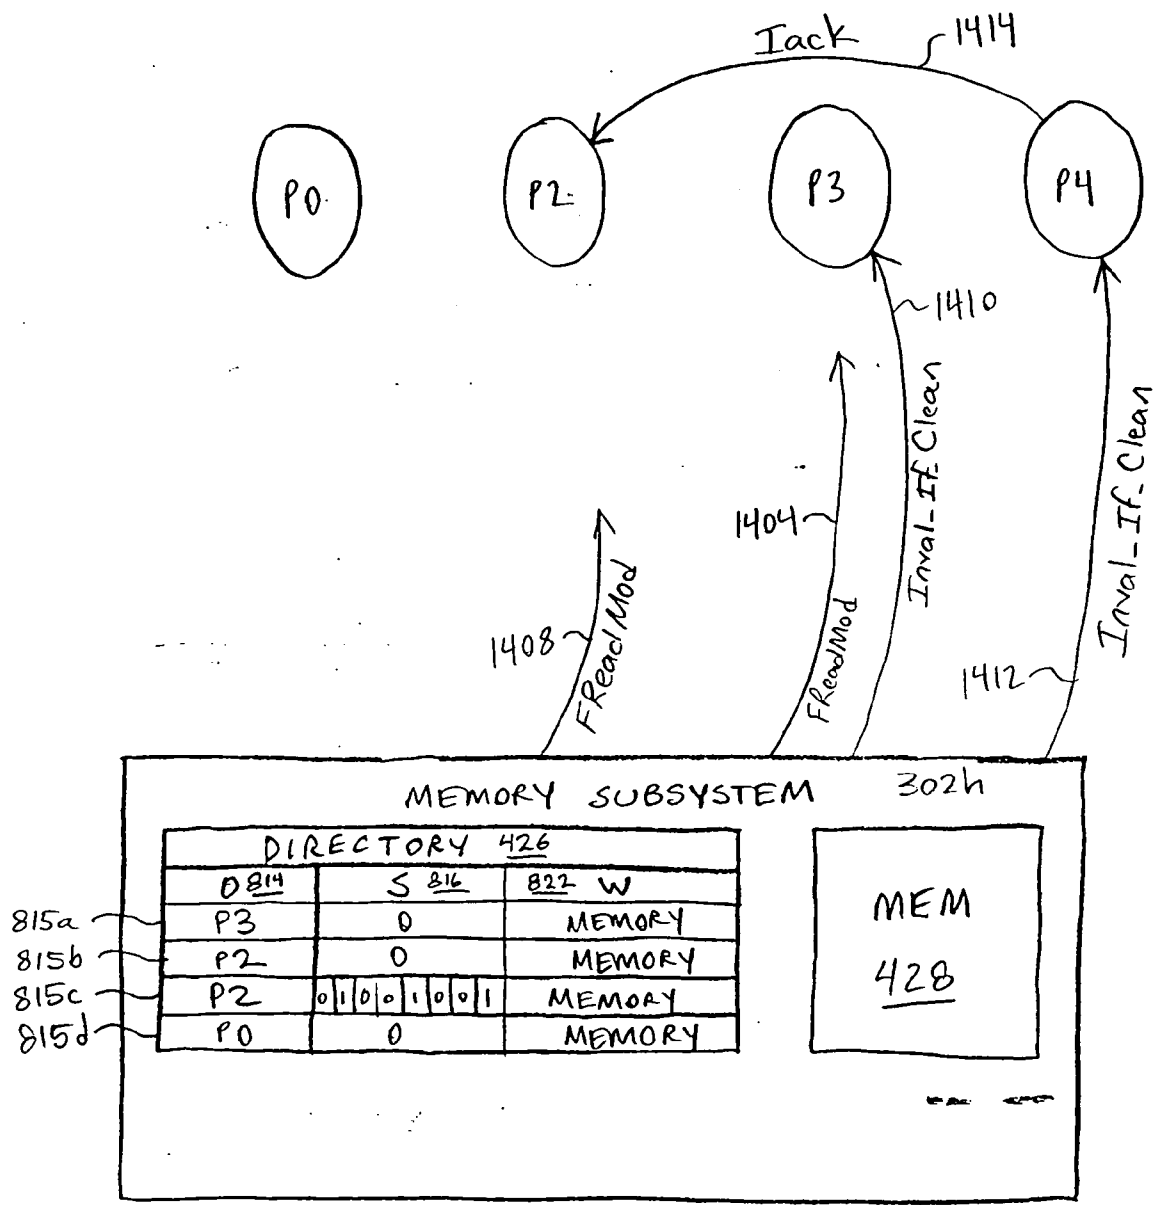 Iack 1414
P0 P2 P3 P4
1410
Inval_If_Clean
1404
FReadMod
Inval_If_Clean
1412
1408
FReadMod
MEMORY SUBSYSTEM 302h
DIRECTORY 426
O 814 S 816 822 W
815a P3 0 MEMORY
815b P2 0 MEMORY
815c P2 0 1 0 0 1 0 0 1 MEMORY
815d P0 0 MEMORY
MEM
428